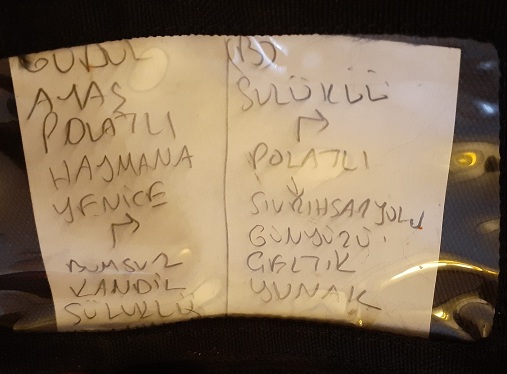 GUDUL
AYAŞ
POLATLI
HAYMANA
YENİCE
BUMSUZ
KANDİL
SÜLÜKLÜ
SÜLÜKLÜ
POLATLI
SİVRİHSARYOLU
GÜNYÜZÜ
GELTİK
YUNAK